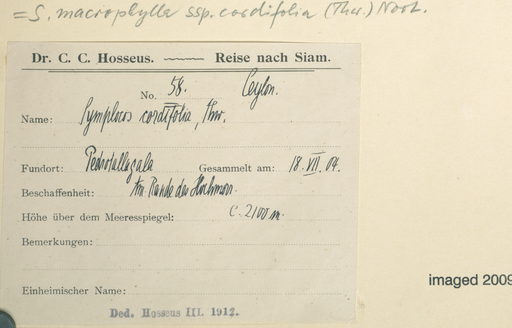 = S. macrophylla ssp. cordifolia (Thw.) Noot.
Dr. C. C. Hosseus. Reise nach Siam.
No. 58. Ceylon.
Name: Symplocos cordifolia, Thw.
Fundort: Pedrotallagala Gesammelt am: 18. VII. 04.
Beschaffenheit: Am Rande des Hochmoor.
Höhe über dem Meeresspiegel: c. 2100 m.
Bemerkungen:
Einheimischer Name:
Ded. Hosseus III. 1912.
imaged 2009